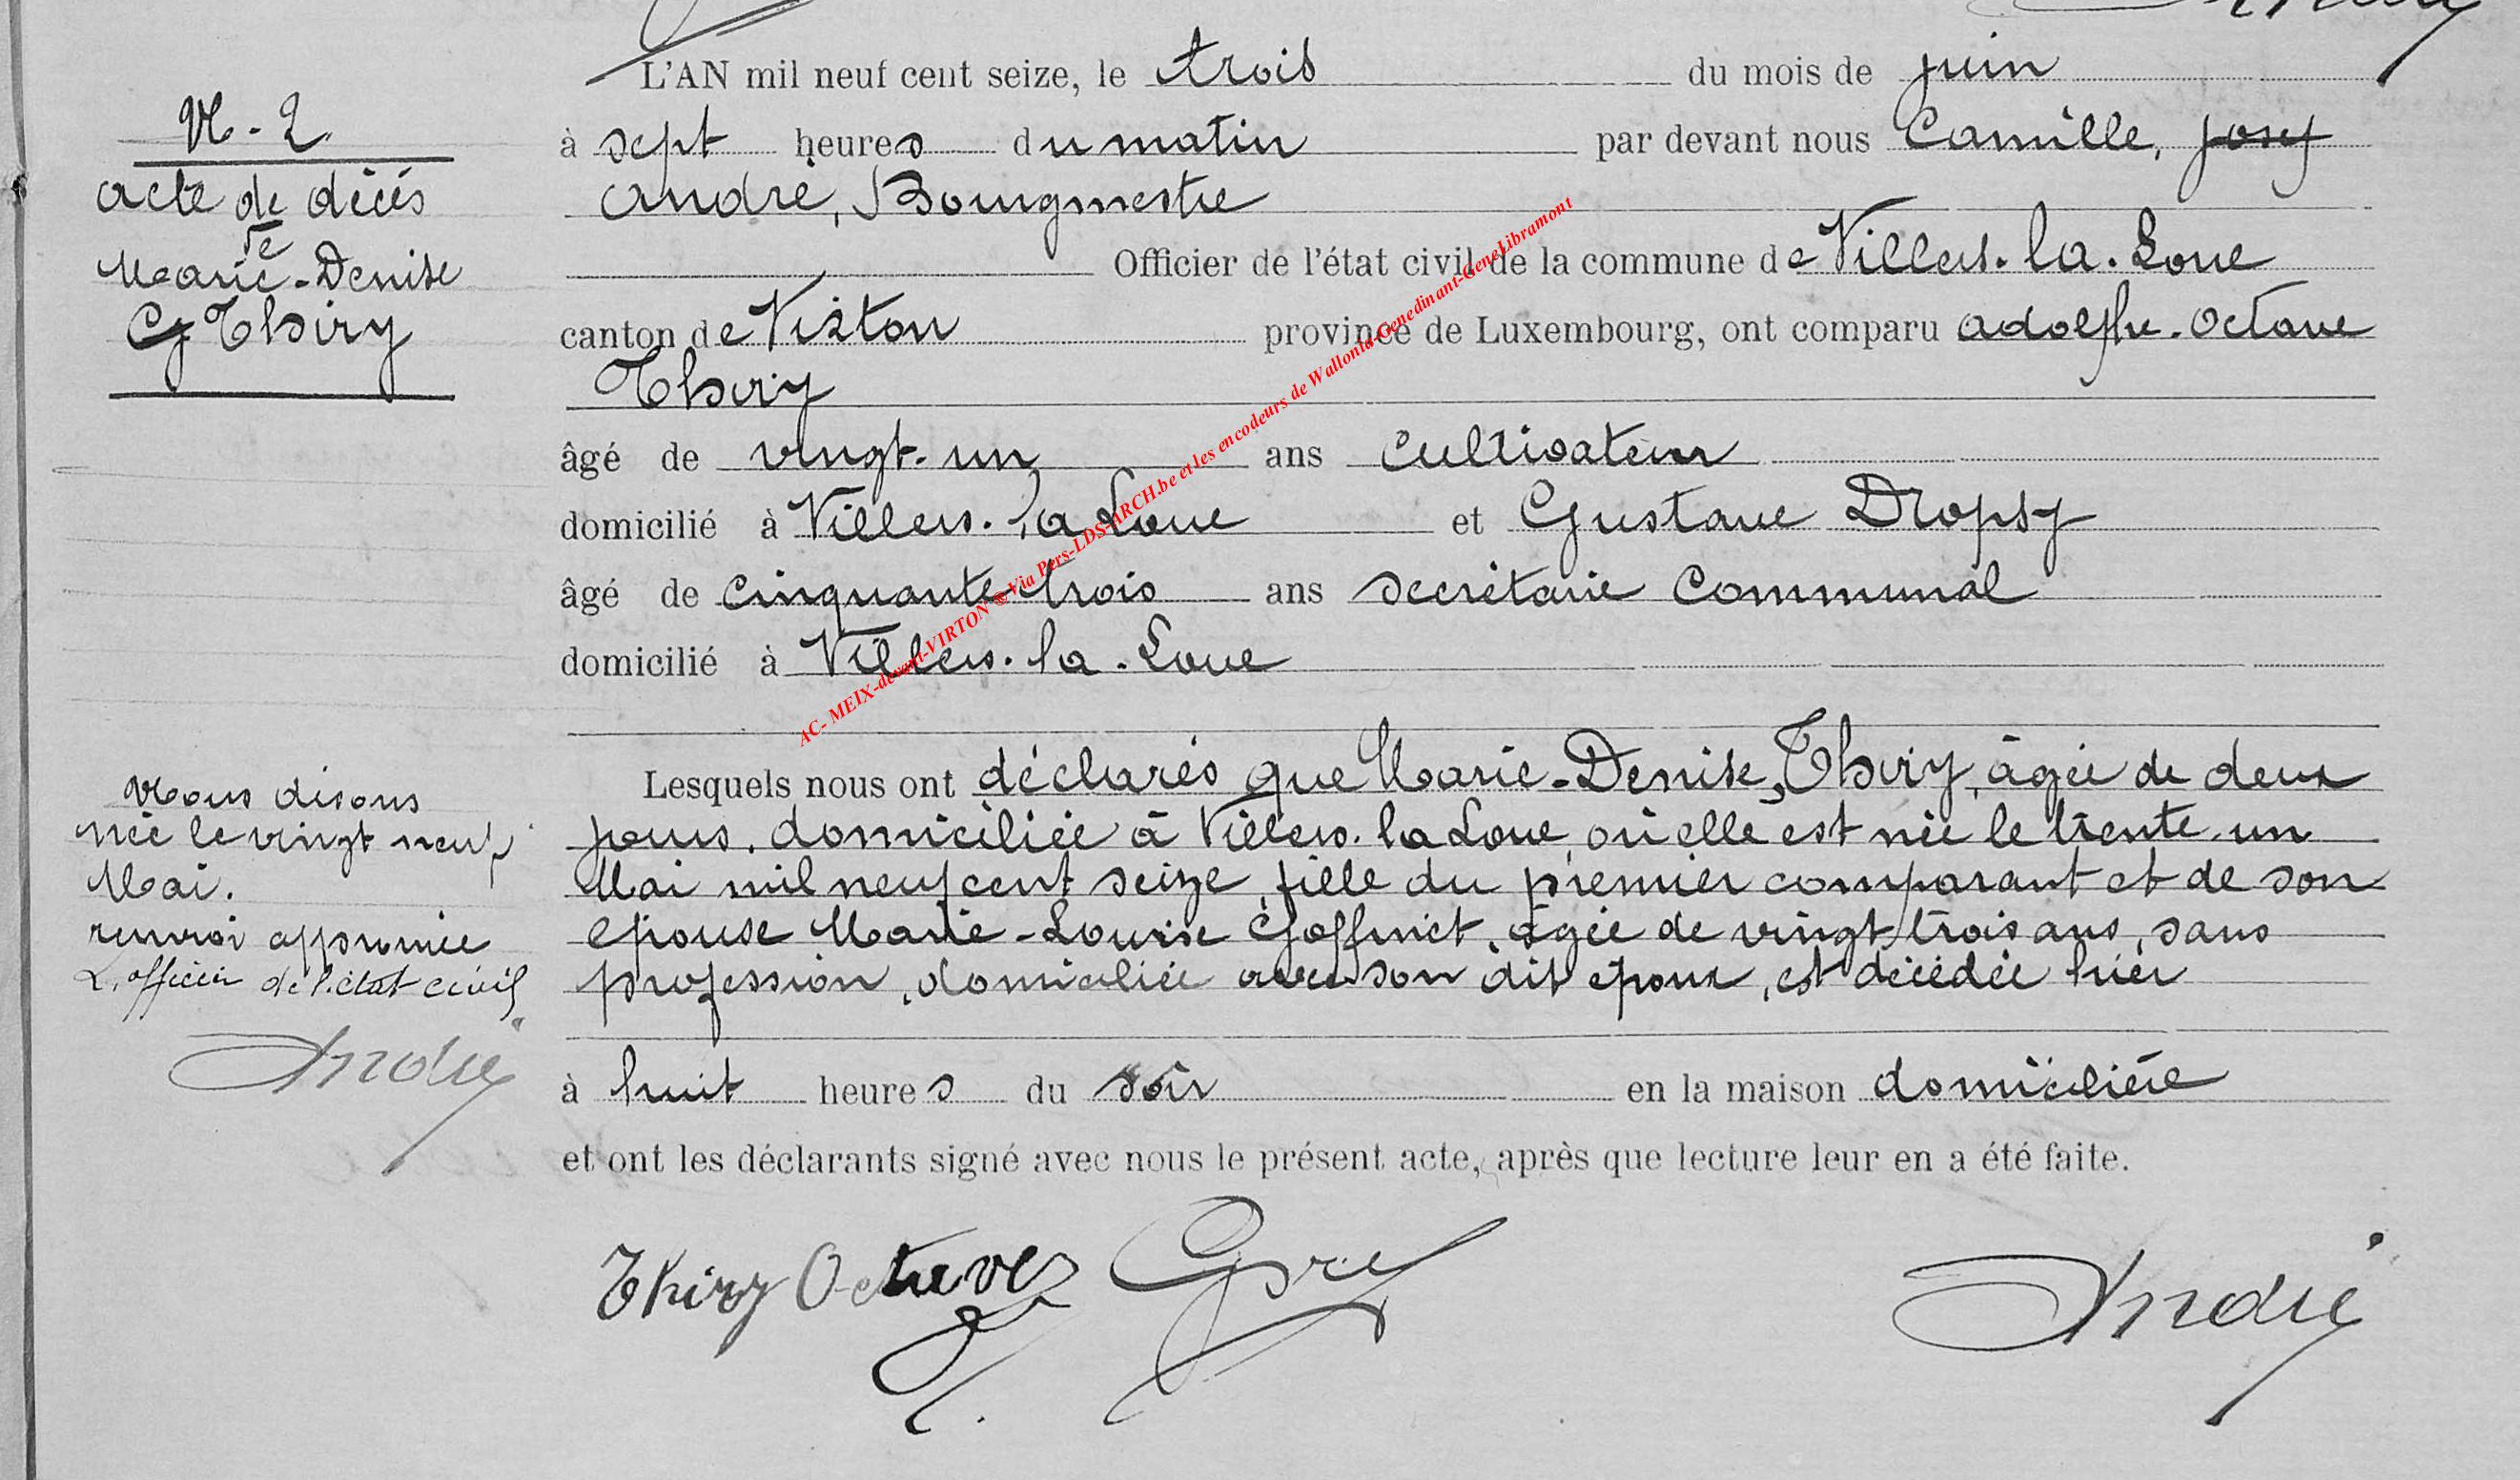 L'AN mil neuf cent seize, le trois du mois de juin
à sept heures du matin par devant nous Camille, Josef
André, Bourgmestre
Officier de l'état civil de la commune de Villers-la-Loue
canton de Virton province de Luxembourg, ont comparu Adolphe-Octave
Thiry
âgé de vingt-un ans cultivateur
domicilié à Villers-la Loue et Gustave Dropsy
âgé de cinquante-trois ans secrétaire communal
domicilié à Villers-la-Loue
Lesquels nous ont déclarés que Marie-Denise, Thiry, âgée de deux
jours, domiciliée à Villers-la Loue, où elle est née le trente-un
Mai mil neuf cent seize, fille du premier comparant et de son
épouse Marie-Louise Goffinet, âgée de vingt trois ans, sans
profession, domiciliée avec son dit époux, est décédée hier
à huit heures du soir en la maison domiciliére
et ont les déclarants signé avec nous le présent acte, après que lecture leur en a été faite.
Thiry Octave
André
N-2
acte de décés
de
Marie-Denise
Thiry
Nous disons
née le vingt neuf
Mai.
renvoi approuvée
L'officier de l'état civil
André
AC- MEIX-devant-VIRTON ® Via Pers-LDS-ARCH.be et les encodeurs de Wallonia-Genedinant-GeneLibramont